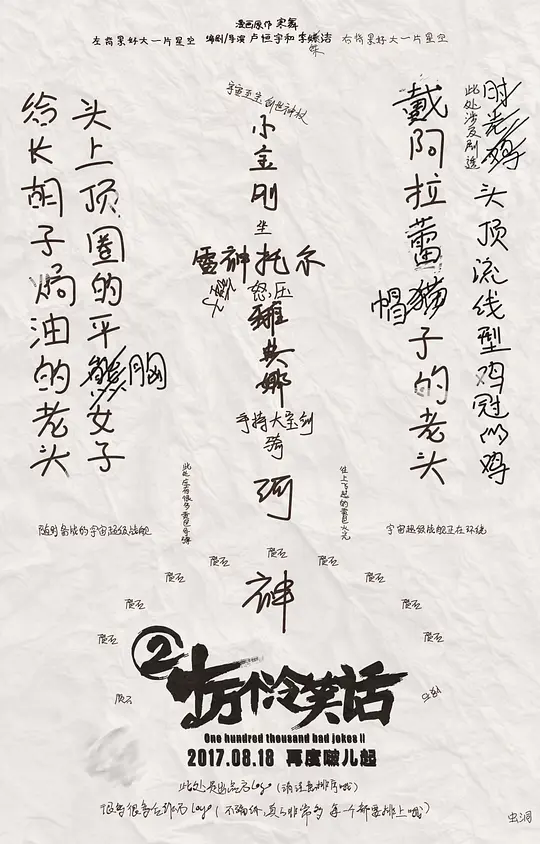 漫画原作 寒舞
左背景好大一片星空 编剧/导演 卢恒宇和李姝洁 右背景好大一片星空
时光鸡
此处涉及剧透
头顶流线型鸡冠的鸡
戴阿拉蕾帽子的老头
宇宙至宝创世神杖
小金刚
坐
雷神托尔
怒压
雅典娜
手持大宝剑
骑
河
神
头上顶圈的平胸女子
给长胡子焗油的老头
往上飞起的黄色火元
随时备战的宇宙超级战舰
宇宙超级战舰正在环绕
陨石
陨石
陨石
陨石
陨石
陨石
陨石
陨石
陨石
陨石
陨石
②
十万个冷笑话
One hundred thousand bad jokes II
2017.08.18 再度啵儿起
此处是出品方logo(请注意排序哦)
很多很多合作方logo(不骗你,真的非常多 每一个都要排上哦)
虫洞